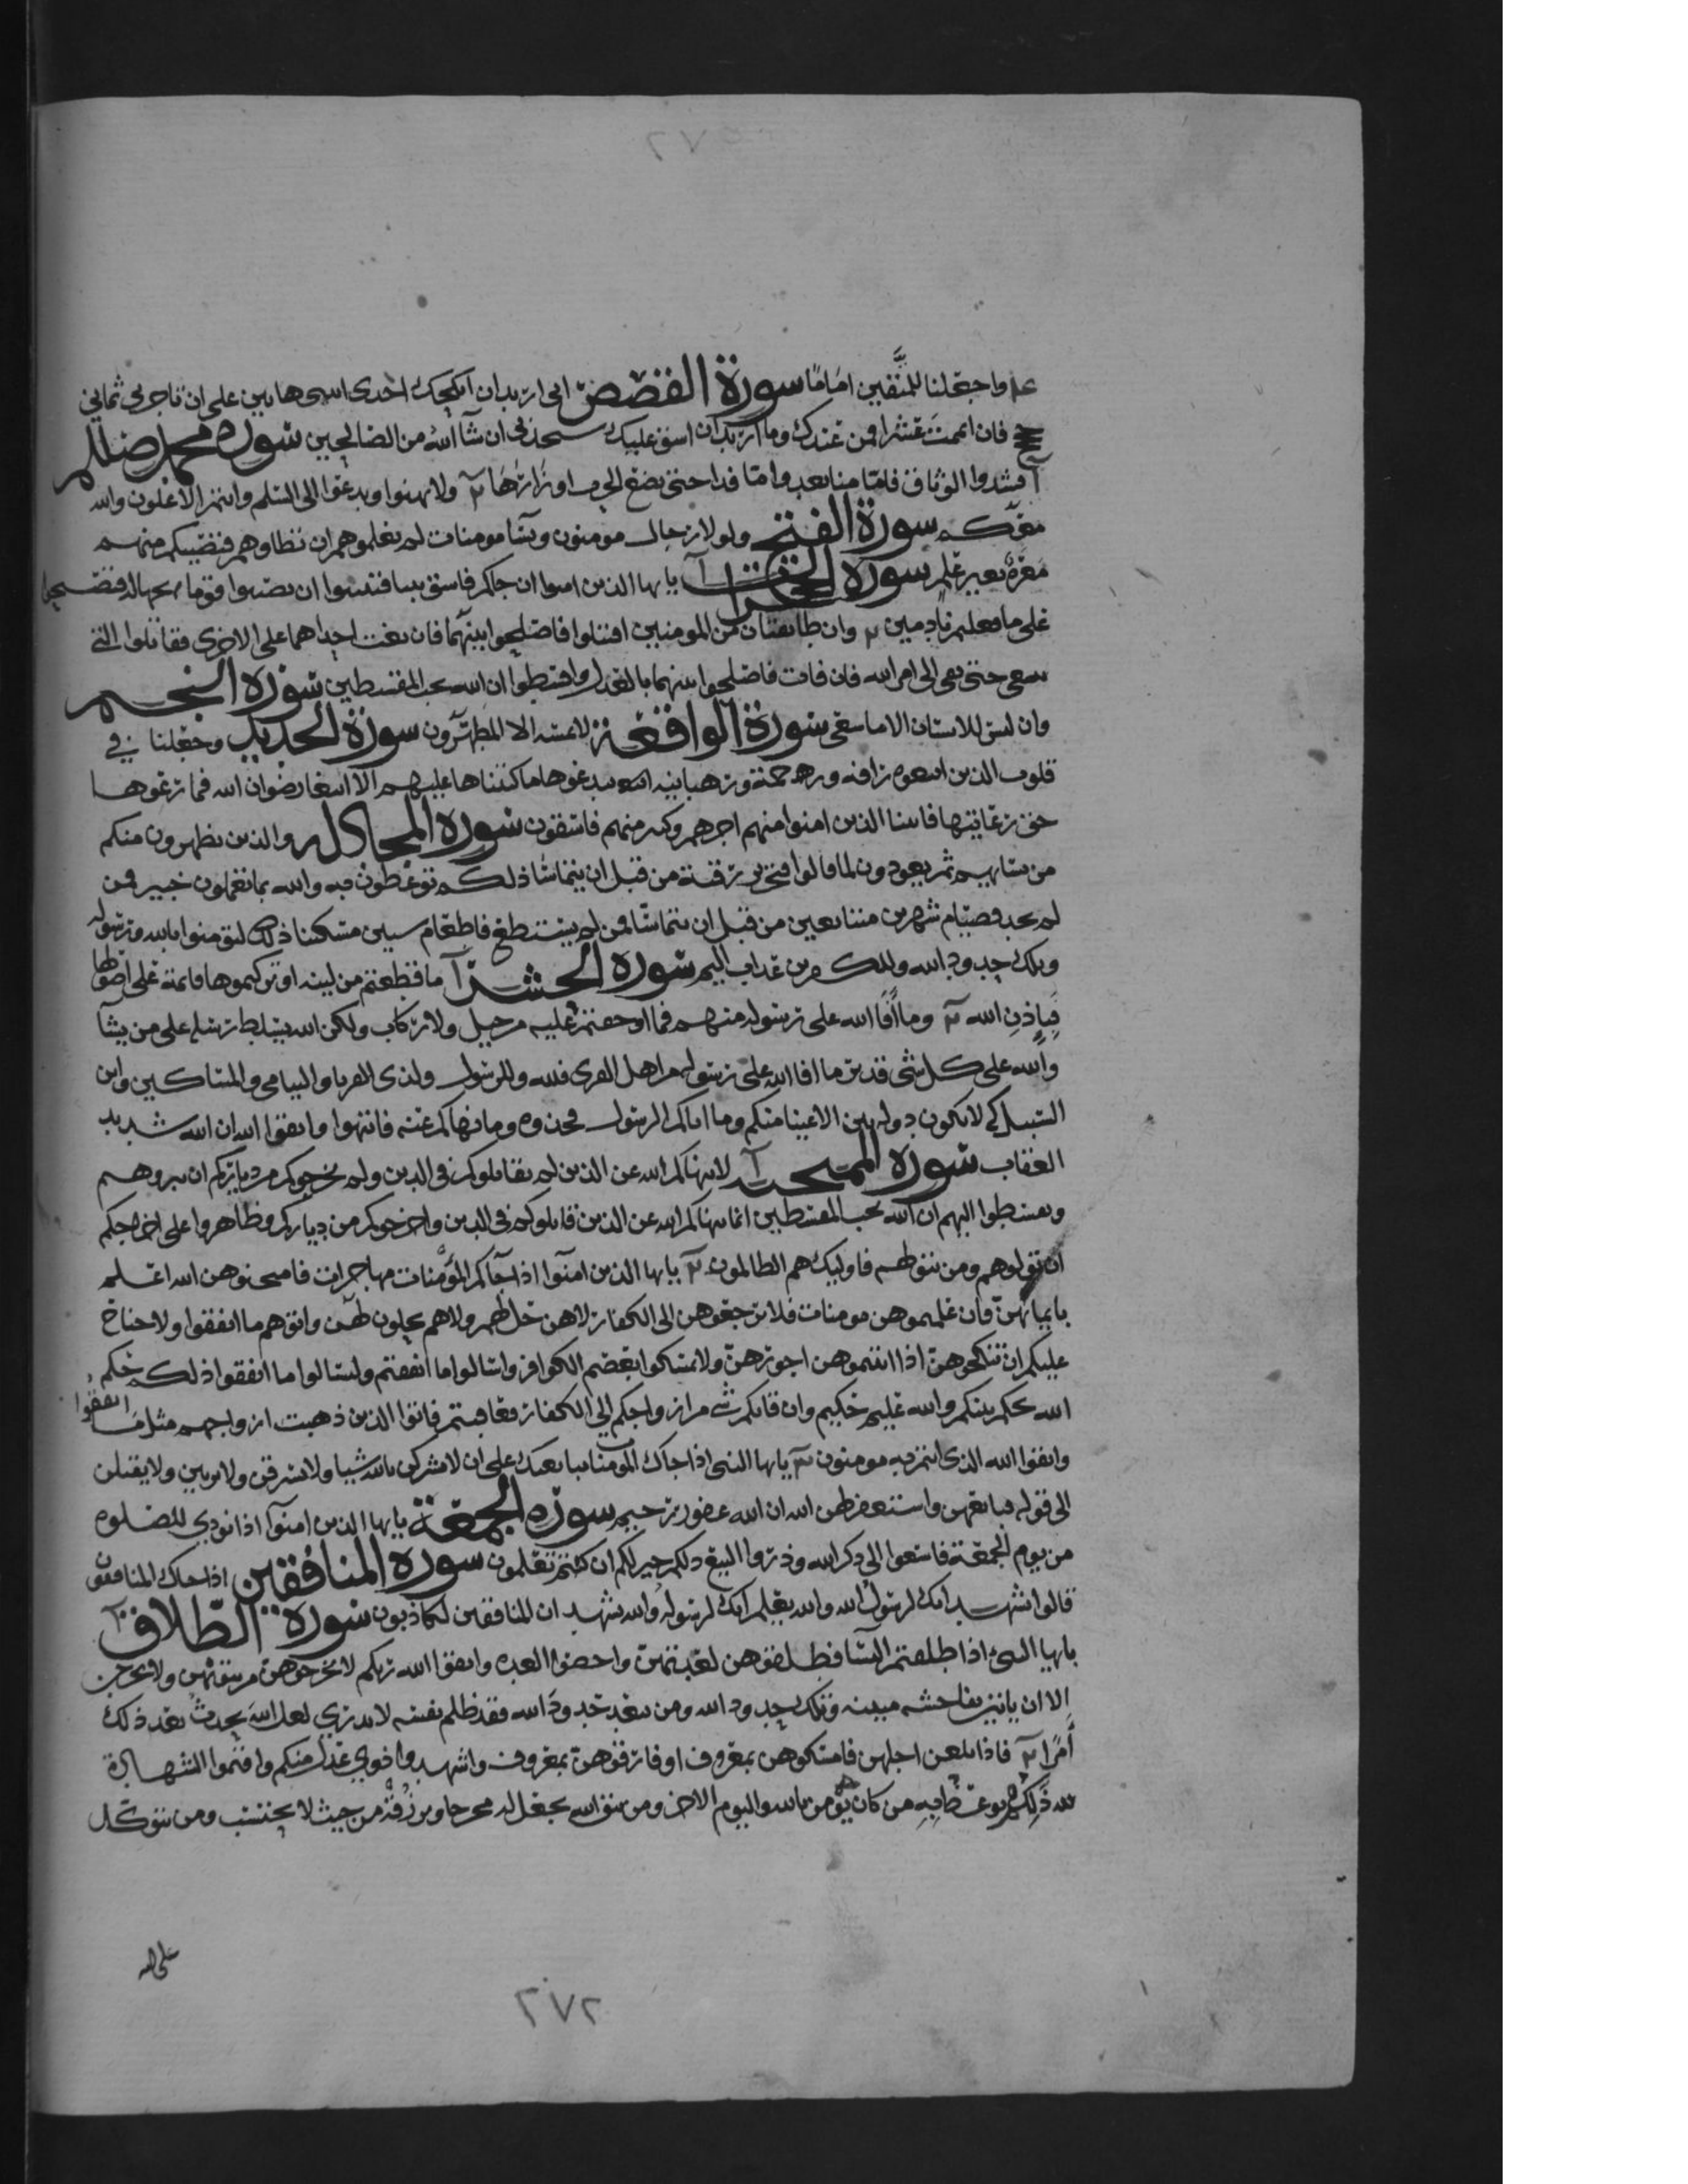 ٢٧٢
واجعلنا للمتقين امامًا سورة القصص اني اريد ان انكحك احدى ابنتي هاتين على ان تاجرني ثماني
حجج فان اتممت عشرا فمن عندك وما اريد ان اشق عليك ستجدني ان شآ الله من الصالحين سورة محمد صللم
آ فشدوا الوثاق فامّا منا بعد وامّا فدا حتى تضع الحرب اوزارها ٢ ولا تهنوا وتدعوا الى السلم وانتم الاعلون والله
معكم سورة الفتح ولولا رجال مومنون ونسآ مومنات لم تعلموهم ان تطاوهم فتصيبكم منهم
معرة بغير علم سورة الحجرات آ يايها الذين امنوا ان جاكم فاسق بنبا فتبينوا ان تصيبوا قوما بجهاله فتصبحوا
على ما فعلتم نادمين ٢ وان طايفتان من المومنين اقتتلوا فاصلحوا بينهما فان بغت احداهما على الاخرى فقاتلوا التي
تبغي حتى تفى الى امر الله فان فات فاصلحوا بينهما بالعدل واقسطوا ان الله يحب المقسطين سورة النجم
وان ليس للانسان الا ما سعى سورة الواقعة لا يمسه الا المطهرون سورة الحديد وجعلنا في
قلوب الذين اتبعوه رافة ورحمة ورهبانيه ابتدعوها ما كتبناها عليهم الا ابتغا رضوان الله فما رعوها
حق رعايتها فاتينا الذين امنوا منهم اجرهم وكثير منهم فاسقون سورة المجادله والذين يظهرون منكم
من نسايهم ثم يعودون لما قالوا فتحرير رقبة من قبل ان يتماسّا ذلكم توعظون به والله بما تعملون خبير فمن
لم يجد فصيام شهرين متتابعين من قبل ان يتماسّا فمن لم يستطع فاطعام ستين مسكينا ذلك لتومنوا بالله ورسوله
وتلك حدود الله وللكفرين عذاب اليم سورة الحشر آ ما قطعتم من لينه او تركتموها قائمة على اصولها
فباذن الله ٢ وما أفا الله على رسوله منهم فما اوجفتم عليه من خيل ولا ركاب ولكن الله يسلط رسله على من يشآ
والله على كل شي قدير ما افا الله على رسوله من اهل القرى فلله وللرسول ولذى القربا واليتامى والمساكين وابن
السبيل كي لا تكون دوله بين الاغنيا منكم وما اتاكم الرسول فخذوه وما نهاكم عنه فانتهوا واتقوا الله ان الله شديد
العقاب سورة الممتحنه آ لا ينهاكم الله عن الذين لم يقاتلوكم في الدين ولم يخرجوكم من دياركم ان تبروهم
وتقسطوا اليهم ان الله يحب المقسطين انما ينهاكم الله عن الذين قاتلوكم في الدين واخرجوكم من دياركم وظاهروا على اخراجكم
ان تولوهم ومن يتولهم فاوليك هم الظالمون ٢ يايها الذين امنوا اذا جآكم المؤمنات مهاجرات فامتحنوهن الله اعلم
بايمانهنّ فان علمتموهن مومنات فلا ترجعوهن الى الكفار لا هن حل لهم ولا هم يحلون لهن واتوهم ما انفقوا ولا جناح
عليكم ان تنكحوهنّ اذا اتيتموهن اجورهنّ ولا تمسكوا بعصم الكوافر واسالوا ما انفقتم وليسالوا ما انفقوا ذلكم حكم
الله يحكم بينكم والله عليم حكيم وان فاتكم شي من ازواجكم الى الكفار فعاقبتم فاتوا الذين ذهبت ازواجهم مثل ما انفقوا
واتقوا الله الذى انتم به مومنون ٣ يايها النبى اذا جاك المومنات يبايعنك على ان لا يشركن بالله شيا ولا يسرقن ولا يزنين ولا يقتلن
الى قوله فبايعهن واستغفر لهن الله ان الله غفور رحيم سورة الجمعة يايها الذين امنوآ اذا نودي للصلوه
من يوم الجمعة فاسعوا الى ذكر الله وذروا البيع ذلكم خير لكم ان كنتم تعلمون سورة المنافقين اذا جاك المنافقون
قالوا نشهد انك لرسول الله والله يعلم انك لرسوله والله يشهد ان المنافقين لكاذبون سورة الطلاق آ
يايها النبى اذا طلقتم النسآ فطلقوهن لعدتهن واحصوا العده واتقوا الله ربكم لا تخرجوهن من بيوتهن ولا يخرجن
الا ان ياتين بفاحشه مبينه وتلك حدود الله ومن يتعد حدود الله فقد ظلم نفسه لا تدرى لعل الله يحدث بعد ذلك
أمرا ٢ فاذا بلغن اجلهن فامسكوهن بمعروف او فارقوهن بمعروف واشهدوا ذوي عدل منكم واقيموا الشهادة
لله ذلكم يوعظ به من كان يؤمن بالله واليوم الاخر ومن يتق الله يجعل له مخرجا ويرزقه من حيث لا يحتسب ومن يتوكل
على الله
٢٧٢